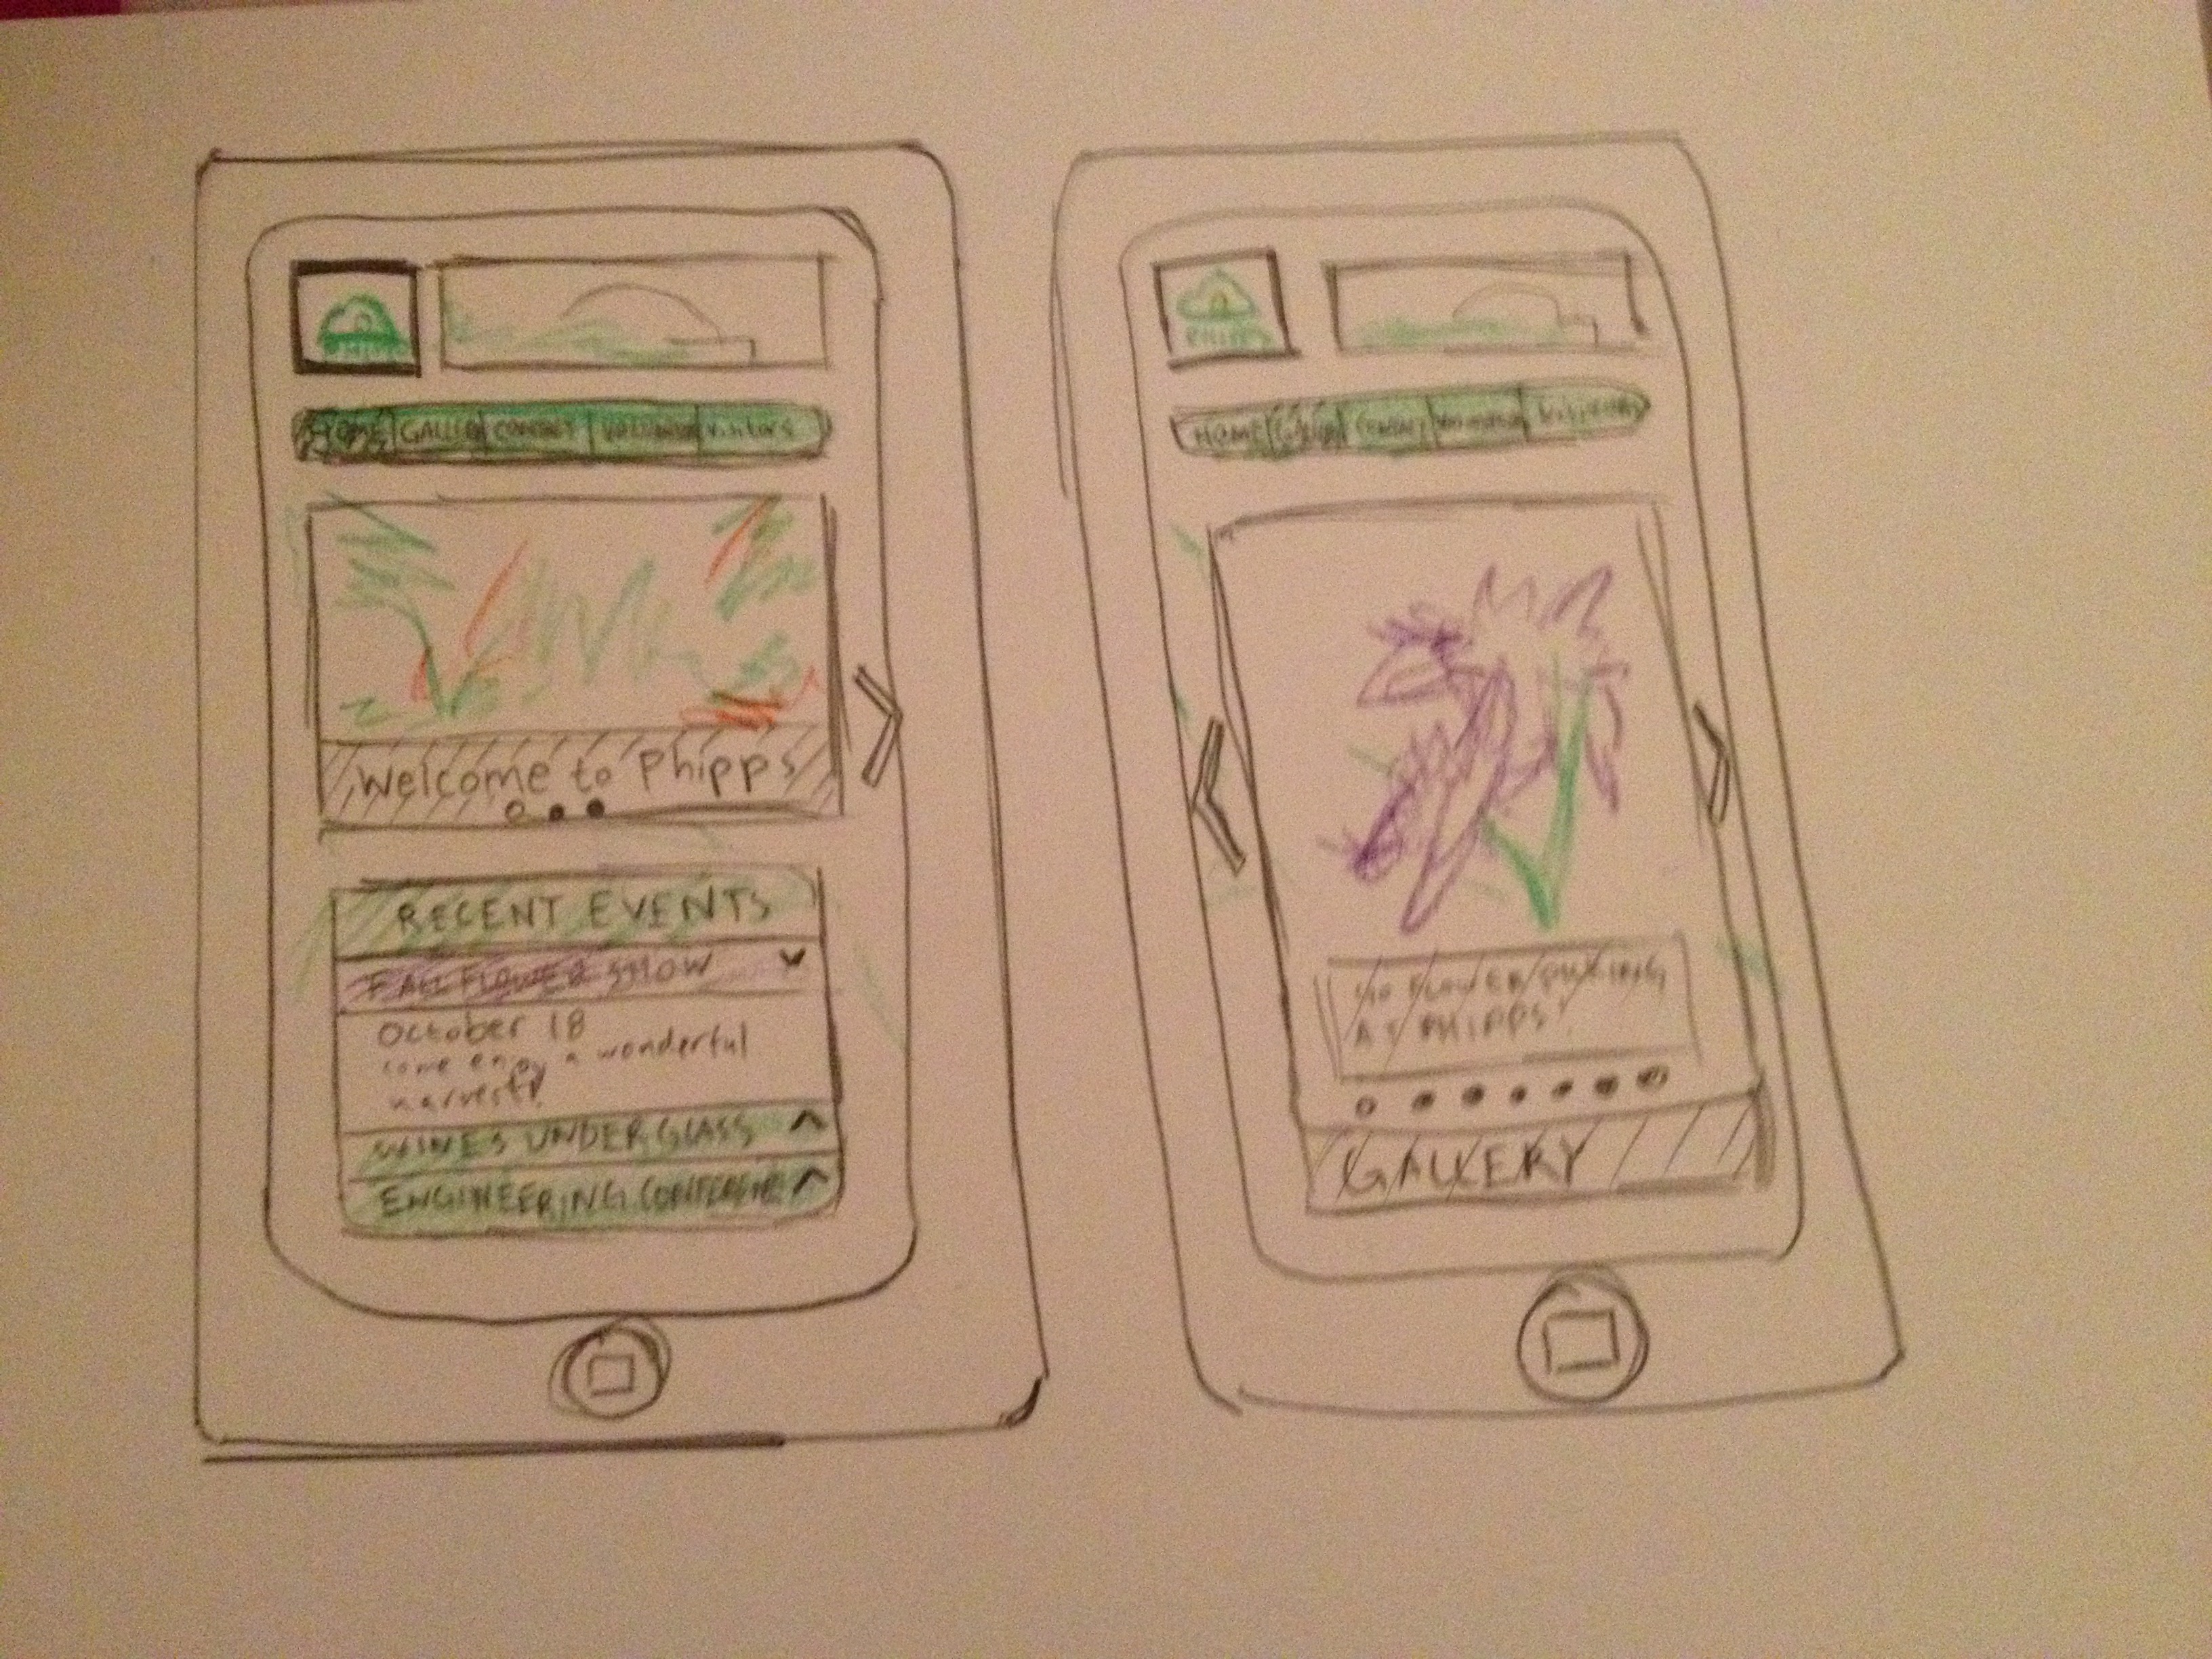 PHIPPS
HOME GALLERY CONTACT VISITORS
Welcome to Phipps
RECENT EVENTS
FALL FLOWER SHOW
October 18
come enjoy a wonderful
WINES UNDER GLASS
ENGINEERING CONFERENCE
PHIPPS
HOME
NO FLOWER PRUNING
AT PHIPPS!
GALLERY